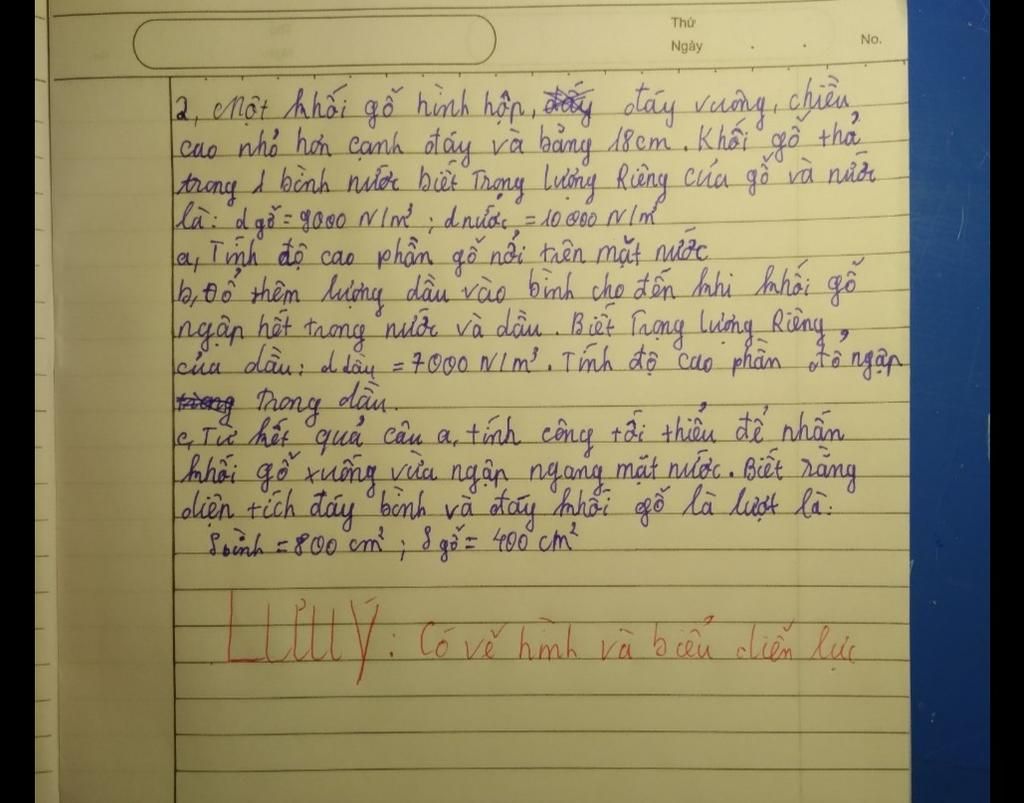 Thứ
Ngày . . No.
2, Một khối gỗ hình hộp, đáy vuông, chiều
cao nhỏ hơn cạnh đáy và bằng 18cm. Khối gỗ thả
trong 1 bình nước biết Trọng lượng Riêng của gỗ và nước
là: d gỗ = 9000 N/m³; d nước = 10000 N/m³
a, Tính độ cao phần gỗ nổi trên mặt nước
b, Đổ thêm lượng dầu vào bình cho đến khi khối gỗ
ngập hết trong nước và dầu. Biết Trọng lượng Riêng
của dầu: d dầu = 7000 N/m³. Tính độ cao phần đổ ngập
Trong dầu.
c, Từ kết quả câu a, tính công tối thiểu để nhấn
khối gỗ xuống vừa ngập ngang mặt nước. Biết rằng
diện tích đáy bình và đáy khối gỗ là lượt là:
S bình = 800 cm²; S gỗ = 400 cm²
LƯU Ý: Có vẽ hình và biểu diễn lực